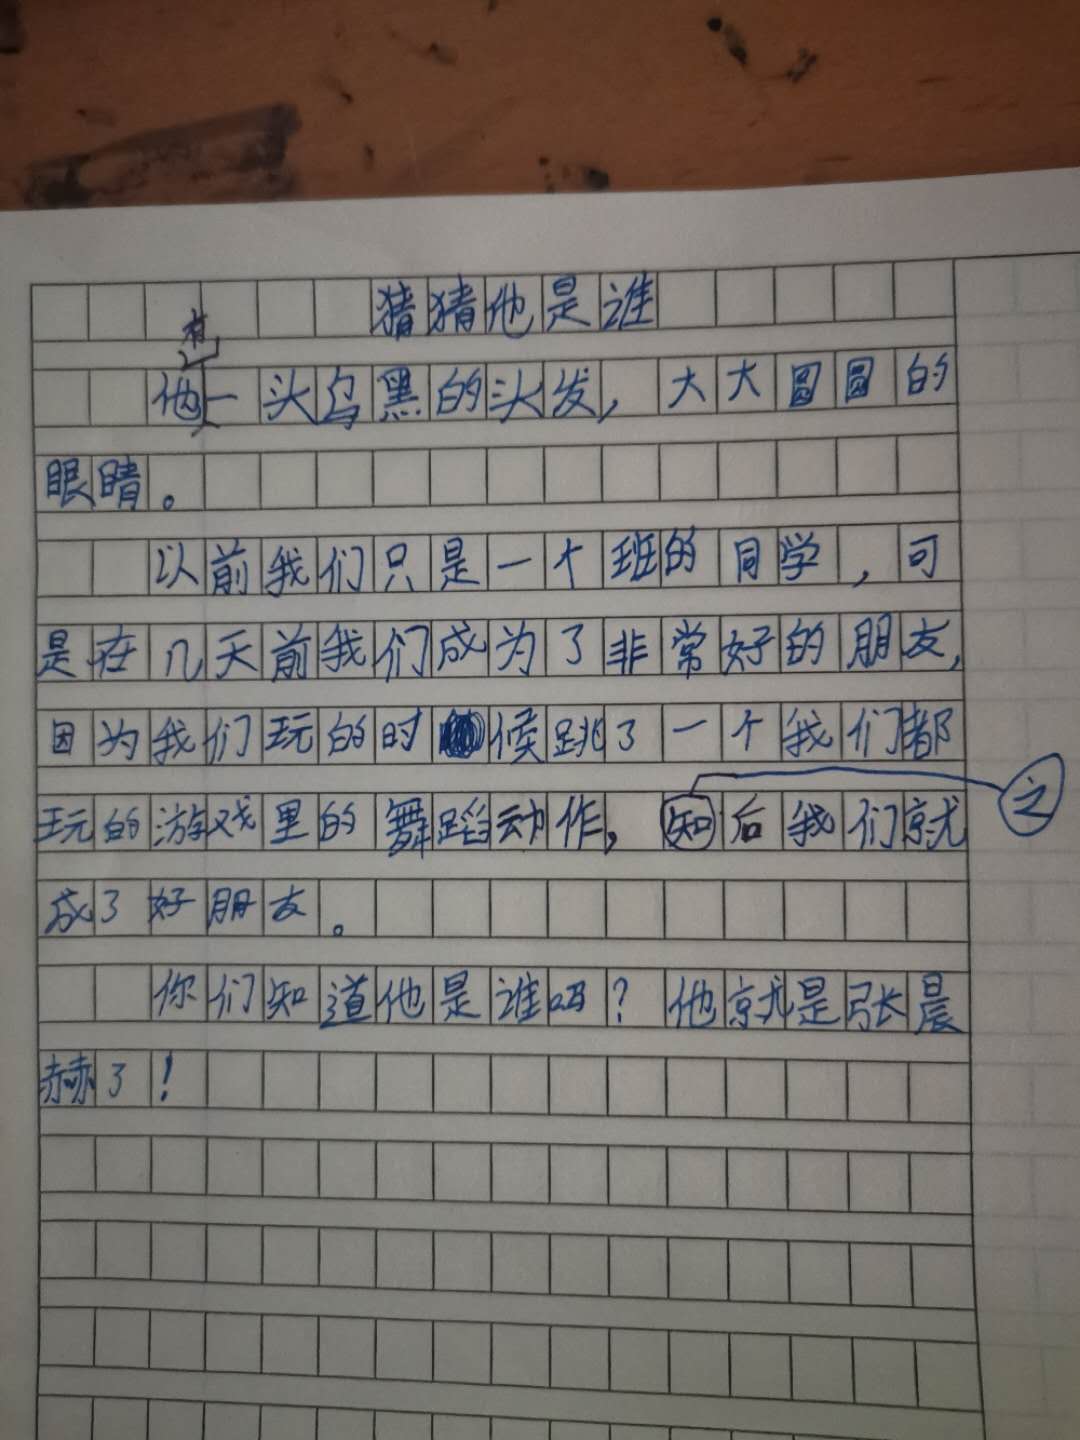 猜猜他是谁
有
他一头乌黑的头发，大大圆圆的
眼睛。
以前我们只是一个班的同学，可
是在几天前我们成为了非常好的朋友，
因为我们玩的时候跳了一个我们都
之
玩的游戏里的舞蹈动作，知后我们就
成了好朋友。
你们知道他是谁吗？他就是张晨
赫了！